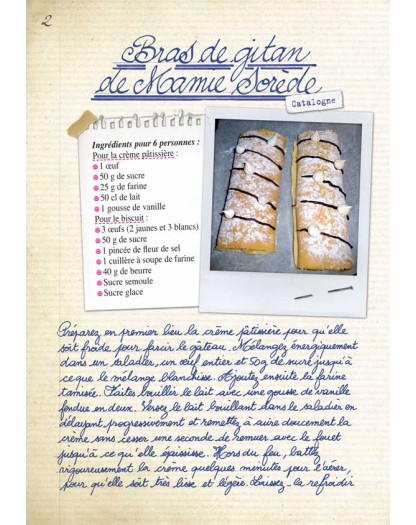 2
Bras de gitan
de Mamie Sorède
Catalogne
Ingrédients pour 6 personnes :
Pour la crème pâtissière :
1 œuf
50 g de sucre
25 g de farine
50 cl de lait
1 gousse de vanille
Pour le biscuit :
3 œufs (2 jaunes et 3 blancs)
50 g de sucre
1 pincée de fleur de sel
1 cuillère à soupe de farine
40 g de beurre
Sucre semoule
Sucre glace
Préparez en premier lieu la crème pâtissière pour qu'elle
soit froide pour farcir le gâteau. Mélangez énergiquement
dans un saladier, un œuf entier et 50g de sucre jusqu'à
ce que le mélange blanchisse. Ajoutez ensuite la farine
tamisée. Faites bouillir le lait avec une gousse de vanille
fendue en deux. Versez le lait bouillant dans le saladier en
délayant progressivement et remettez à cuire doucement la
crème sans cesser une seconde de remuer avec le fouet
jusqu'à ce qu'elle épaississe. Hors du feu, battez
vigoureusement la crème quelques minutes pour l'aérer,
pour qu'elle soit très lisse et légère. Laissez-la refroidir